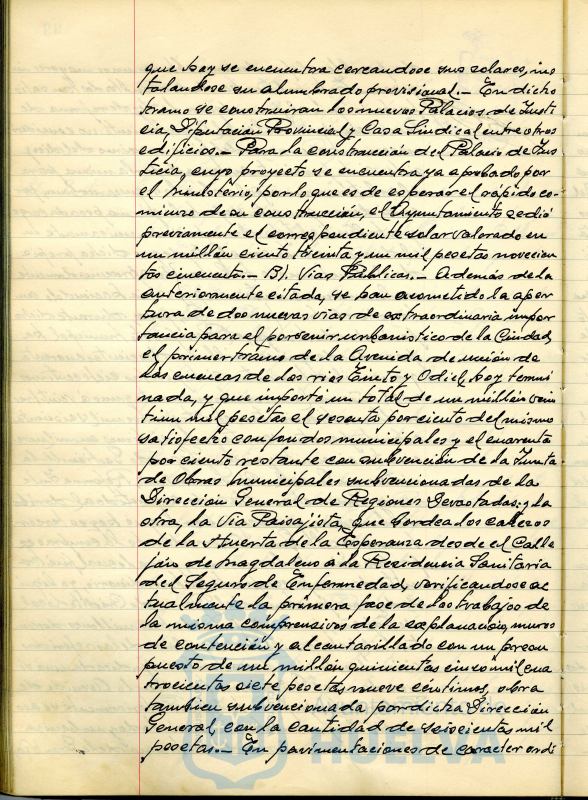 que hoy se encuentra cercandose sus solares, ins
talandose su alumbrado provisional.- En dicho
tramo se construiran los nuevos Palacios de Justi
cia, Diputación Provincial y Casa Sindical entre otros
edificios.- Para la construcción del Palacio de Jus
ticia, cuyo proyecto se encuentra ya aprobado por
el Ministerio, por lo que es de esperar el rápido co-
mienzo de su construcción, el Ayuntamiento cedió
previamente el correspondiente solar valorado en
un millón ciento treinta y un mil pesetas novecien
tas cincuenta.- B). Vias Publicas.- Además de la
anteriormente citada, se han acometido la aper
tura de dos nuevas vias de extraordinaria impor
tancia para el porvenir urbanistico de la Ciudad,
el primer tramo de la Avenida de unión de
las cuencas de los rios Tinto y Odiel, hoy termi
nada, y que importó un total de un millón vein
tiun mil pesetas el sesenta por ciento del mismo
satisfecho con fondos municipales y el cuarenta
por ciento restante con subvención de la Junta
de Obras Municipales subvencionadas de la
Dirección General de Regiones Devastadas; y la
otra, la Via Paisajista, que bordea los cabezos
de la Huerta de la Esperanza desde el Calle
jón de Magdaleno á la Residencia Sanitaria
del Seguro de Enfermedad, verificandose ac
tualmente la primera fase de los trabajos de
la misma comprensivos de la explanación, muros
de contención y alcantarillado con un presu
puesto de un millón quinientas cinco mil cua
trocientas siete pesetas nueve céntimos, obra
tambien subvencionada por dicha Dirección
General, con la cantidad de seiscientas mil
pesetas.- En pavimentaciones de caracter ordi
HUELVA